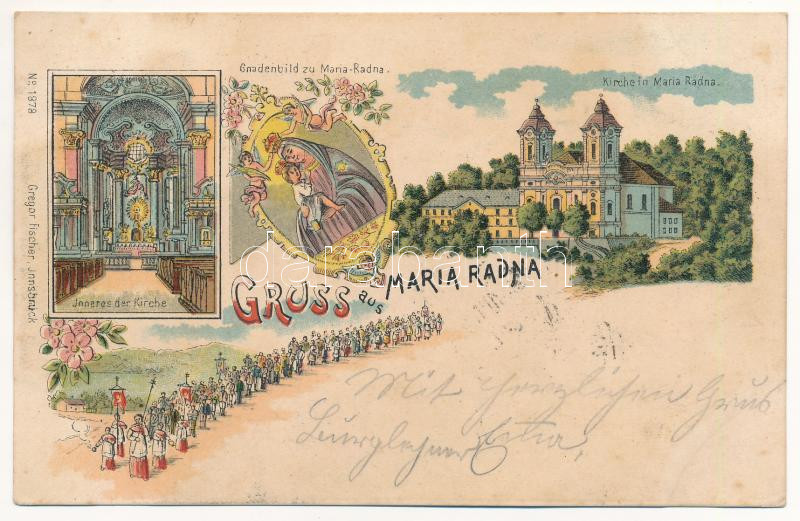 Gnadenbild zu Maria-Radna.
Kirche in Maria Radna.
No. 1878
Gregor Fischer, Innsbruck
Inneres der Kirche
GRUSS aus MARIA RADNA
darabanth
Mit herzlichen Gruß